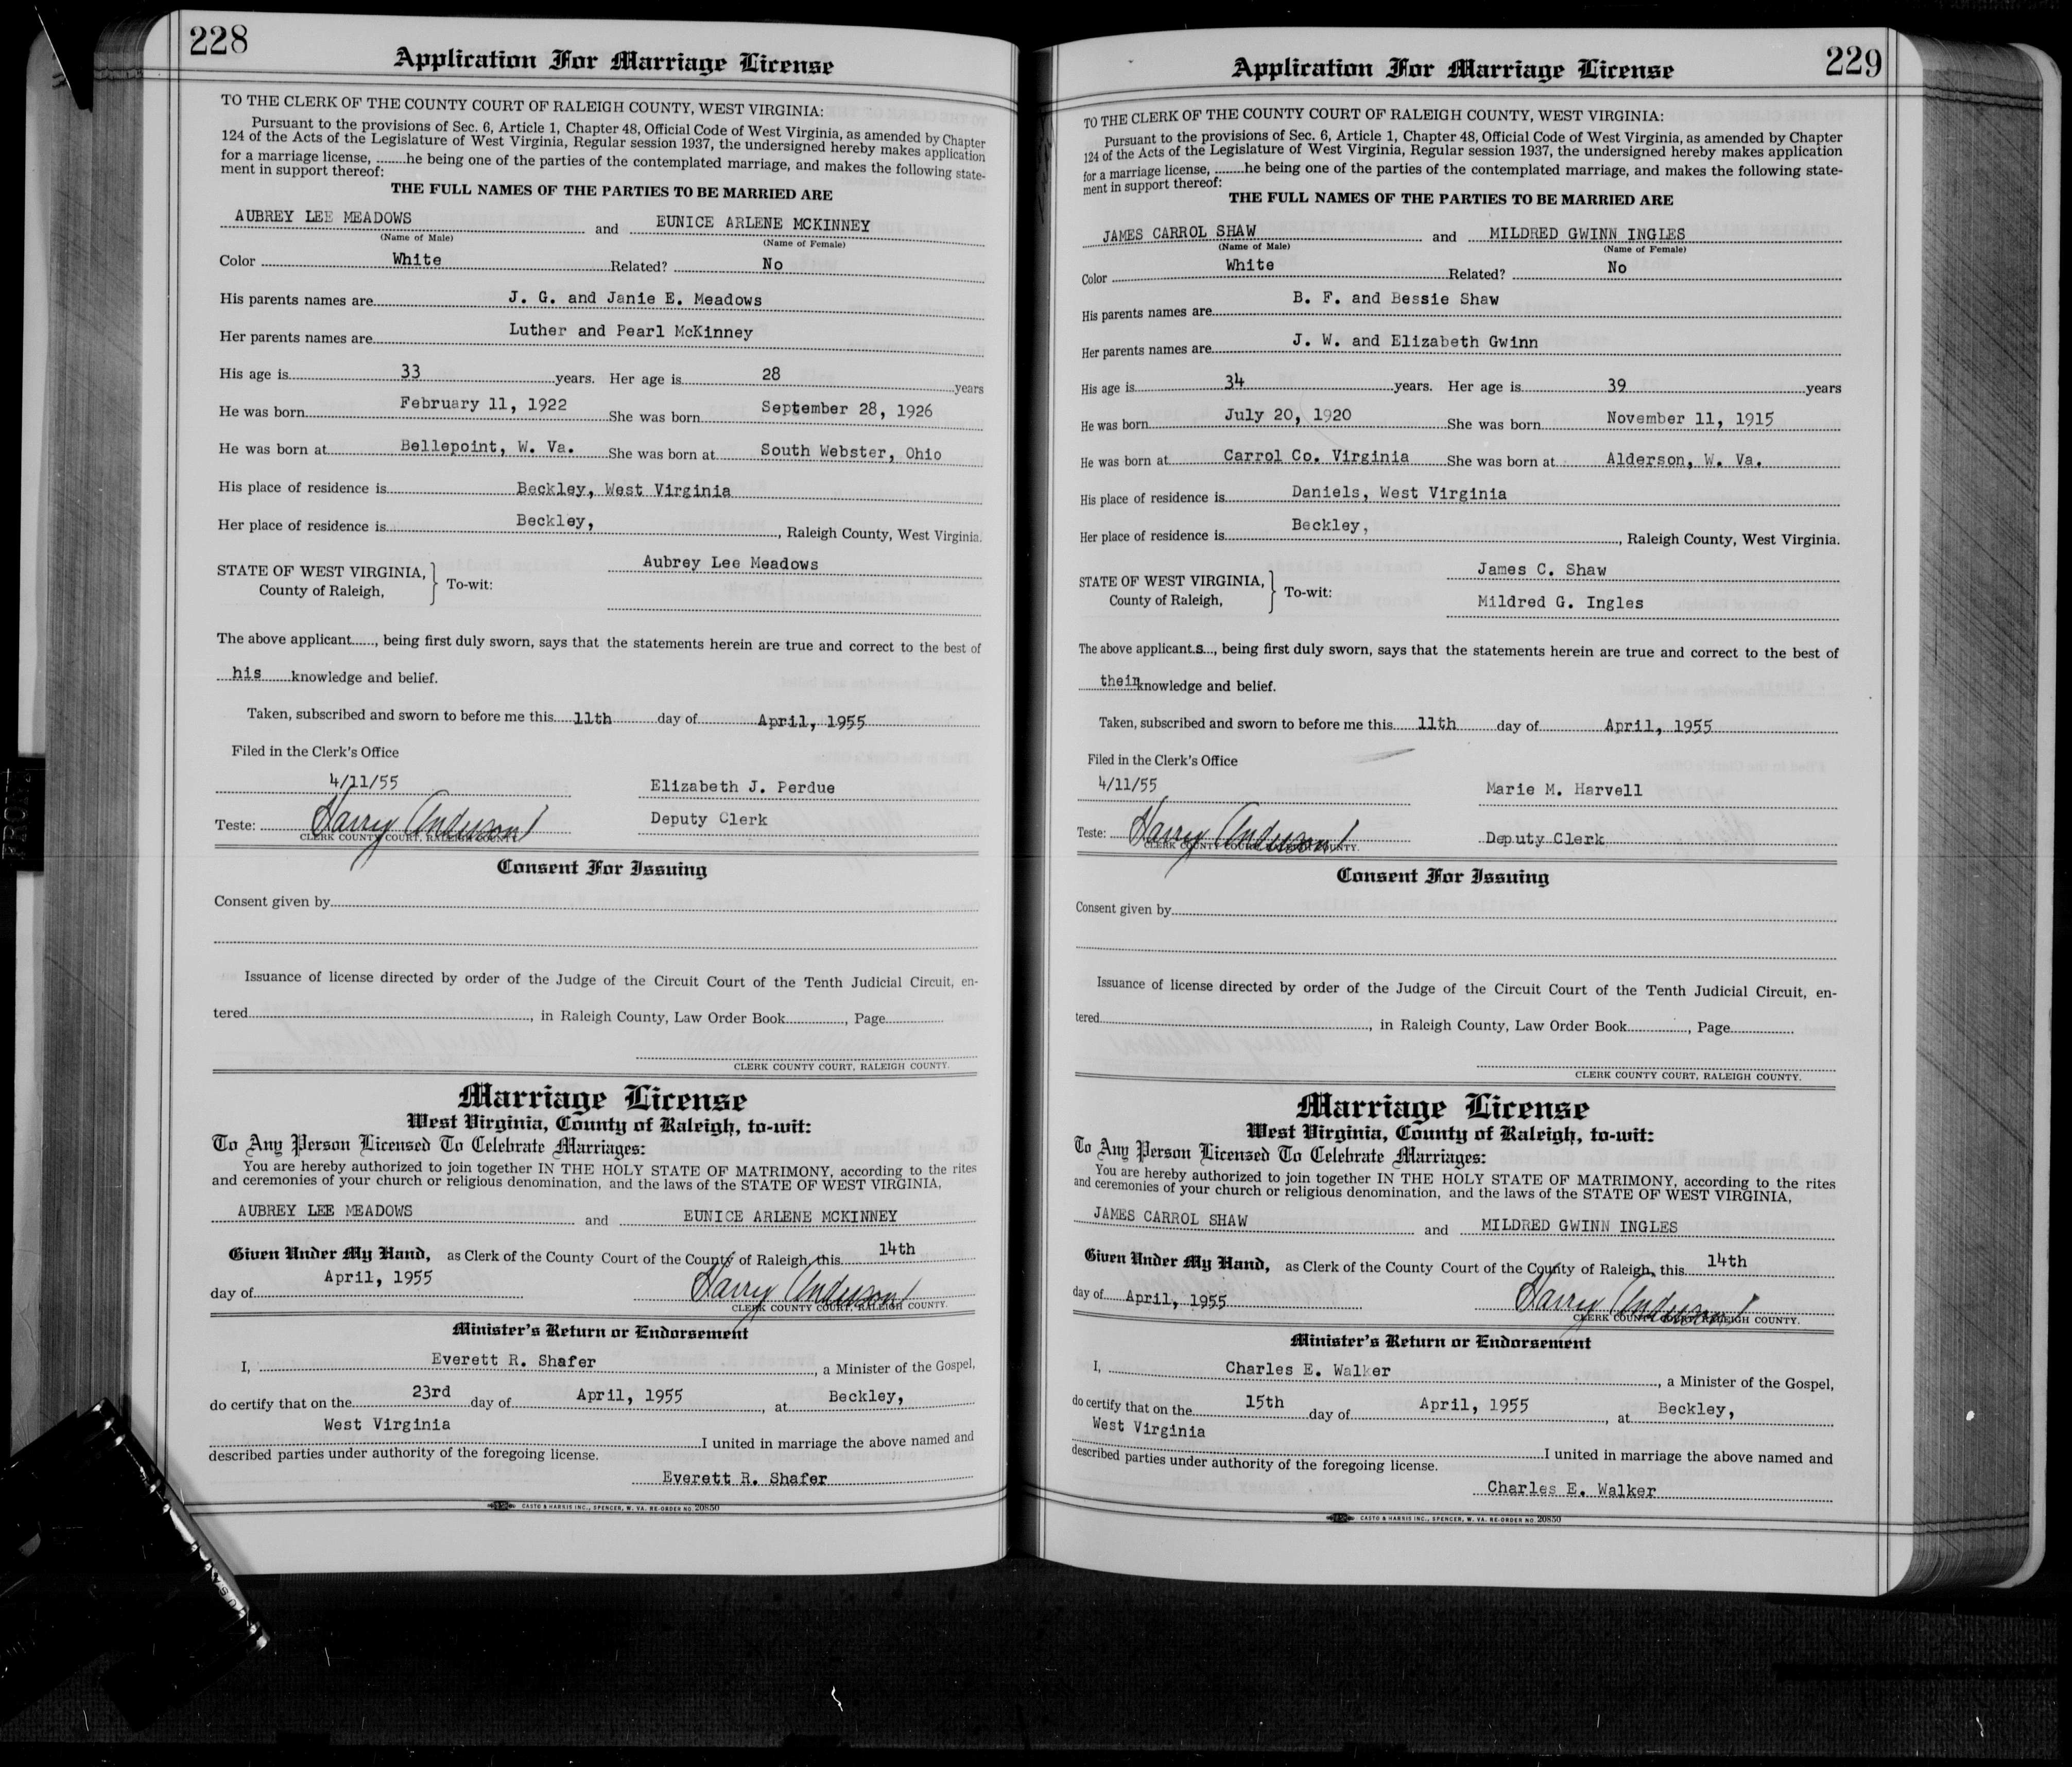 228
Application For Marriage License
TO THE CLERK OF THE COUNTY COURT OF RALEIGH COUNTY, WEST VIRGINIA:
Pursuant to the provisions of Sec. 6, Article 1, Chapter 48, Official Code of West Virginia, as amended by Chapter
124 of the Acts of the Legislature of West Virginia, Regular session 1937, the undersigned hereby makes application
for a marriage license, ........he being one of the parties of the contemplated marriage, and makes the following state-
ment in support thereof:
THE FULL NAMES OF THE PARTIES TO BE MARRIED ARE
AUBREY LEE MEADOWS and EUNICE ARLENE MCKINNEY
(Name of Male) (Name of Female)
Color White Related? No
His parents names are J. G. and Janie E. Meadows
Her parents names are Luther and Pearl McKinney
His age is 33 years. Her age is 28 years
He was born February 11, 1922 She was born September 28, 1926
He was born at Bellepoint, W. Va. She was born at South Webster, Ohio
His place of residence is Beckley, West Virginia
Her place of residence is Beckley, , Raleigh County, West Virginia.
Aubrey Lee Meadows
STATE OF WEST VIRGINIA,
County of Raleigh, } To-wit:
The above applicant......, being first duly sworn, says that the statements herein are true and correct to the best of
his knowledge and belief.
Taken, subscribed and sworn to before me this 11th day of April, 1955
Filed in the Clerk's Office
4/11/55 Elizabeth J. Perdue
Teste: Harry Anderson Deputy Clerk
CLERK COUNTY COURT, RALEIGH COUNTY.
Consent For Issuing
Consent given by
Issuance of license directed by order of the Judge of the Circuit Court of the Tenth Judicial Circuit, en-
tered, in Raleigh County, Law Order Book, Page
CLERK COUNTY COURT, RALEIGH COUNTY.
Marriage License
West Virginia, County of Raleigh, to-wit:
To Any Person Licensed To Celebrate Marriages:
You are hereby authorized to join together IN THE HOLY STATE OF MATRIMONY, according to the rites
and ceremonies of your church or religious denomination, and the laws of the STATE OF WEST VIRGINIA,
AUBREY LEE MEADOWS and EUNICE ARLENE MCKINNEY
Given Under My Hand, as Clerk of the County Court of the County of Raleigh, this 14th
day of April, 1955 Harry Anderson
CLERK COUNTY COURT, RALEIGH COUNTY.
Minister's Return or Endorsement
I, Everett R. Shafer, a Minister of the Gospel,
do certify that on the 23rd day of April, 1955, at Beckley,
West Virginia I united in marriage the above named and
described parties under authority of the foregoing license.
Everett R. Shafer
CASTO & HARRIS INC., SPENCER, W. VA. RE-ORDER NO. 20850
229
Application For Marriage License
TO THE CLERK OF THE COUNTY COURT OF RALEIGH COUNTY, WEST VIRGINIA:
Pursuant to the provisions of Sec. 6, Article 1, Chapter 48, Official Code of West Virginia, as amended by Chapter
124 of the Acts of the Legislature of West Virginia, Regular session 1937, the undersigned hereby makes application
for a marriage license, ........he being one of the parties of the contemplated marriage, and makes the following state-
ment in support thereof:
THE FULL NAMES OF THE PARTIES TO BE MARRIED ARE
JAMES CARROL SHAW and MILDRED GWINN INGLES
(Name of Male) (Name of Female)
Color White Related? No
His parents names are B. F. and Bessie Shaw
Her parents names are J. W. and Elizabeth Gwinn
His age is 34 years. Her age is 39 years
He was born July 20, 1920 She was born November 11, 1915
He was born at Carrol Co. Virginia She was born at Alderson, W. Va.
His place of residence is Daniels, West Virginia
Her place of residence is Beckley, , Raleigh County, West Virginia.
James C. Shaw
STATE OF WEST VIRGINIA,
County of Raleigh, } To-wit:
Mildred G. Ingles
The above applicant.s..., being first duly sworn, says that the statements herein are true and correct to the best of
their knowledge and belief.
Taken, subscribed and sworn to before me this 11th day of April, 1955
Filed in the Clerk's Office
4/11/55 Marie M. Harvell
Teste: Harry Anderson Deputy Clerk
CLERK COUNTY COURT, RALEIGH COUNTY.
Consent For Issuing
Consent given by
Issuance of license directed by order of the Judge of the Circuit Court of the Tenth Judicial Circuit, en-
tered, in Raleigh County, Law Order Book, Page
CLERK COUNTY COURT, RALEIGH COUNTY.
Marriage License
West Virginia, County of Raleigh, to-wit:
To Any Person Licensed To Celebrate Marriages:
You are hereby authorized to join together IN THE HOLY STATE OF MATRIMONY, according to the rites
and ceremonies of your church or religious denomination, and the laws of the STATE OF WEST VIRGINIA,
JAMES CARROL SHAW and MILDRED GWINN INGLES
Given Under My Hand, as Clerk of the County Court of the County of Raleigh, this 14th
day of April, 1955 Harry Anderson
CLERK COUNTY COURT, RALEIGH COUNTY.
Minister's Return or Endorsement
I, Charles E. Walker, a Minister of the Gospel,
do certify that on the 15th day of April, 1955, at Beckley,
West Virginia I united in marriage the above named and
described parties under authority of the foregoing license.
Charles E. Walker
CASTO & HARRIS INC., SPENCER, W. VA. RE-ORDER NO. 20850